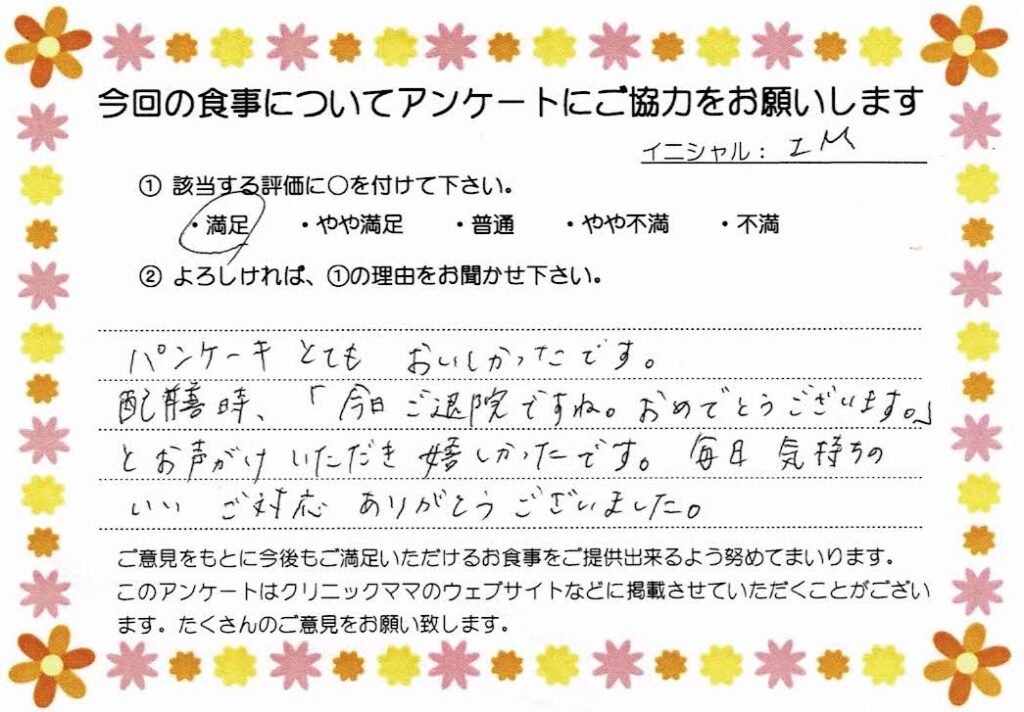 今回の食事についてアンケートにご協力をお願いします
イニシャル： IM
① 該当する評価に○を付けて下さい。
・満足 ・やや満足 ・普通 ・やや不満 ・不満
② よろしければ、①の理由をお聞かせ下さい。
パンケーキ とても おいしかったです。
配膳時、「今日ご退院ですね。おめでとうございます。」
とお声がけ いただき 嬉しかったです。毎日 気持ちの
いい ご対応 ありがとうございました。
ご意見をもとに今後もご満足いただけるお食事をご提供出来るよう努めてまいります。
このアンケートはクリニックママのウェブサイトなどに掲載させていただくことがござい
ます。たくさんのご意見をお願い致します。